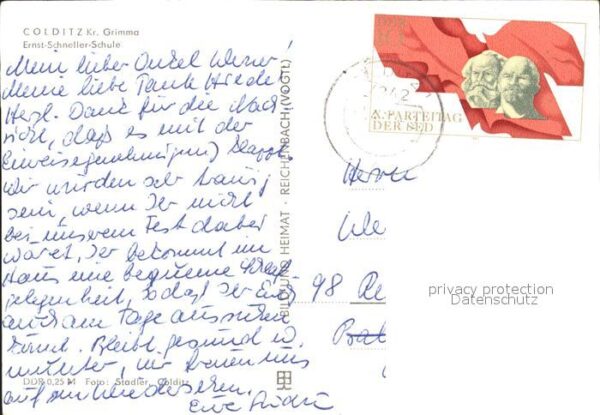 COLDITZ Kr. Grimma
Ernst-Schneller-Schule
Mein lieber Onkel Werner!
Meine liebe Tante Friedel
Herzl. Dank für die Nach
richt, daß es mit der
Einreisegenehmigung klappt.
Wir würden sehr traurig
sein, wenn Ihr nicht
bei unserem Fest dabei
wäret. Ihr bekommt im
Haus eine bequeme Schlaf
gelegenheit, sodaß Ihr Euch
auch am Tage ausruhen
könnt. Bleibt gesund u.
munter, wir freuen uns
auf ein Wiedersehen.
Eure
DDR 0,25 M Foto: Stadler, Colditz
BILD UND HEIMAT · REICHENBACH (VOGTL)
DDR
X. PARTEITAG
DER SED
Herrn
98 Re
privacy protection
Datenschutz